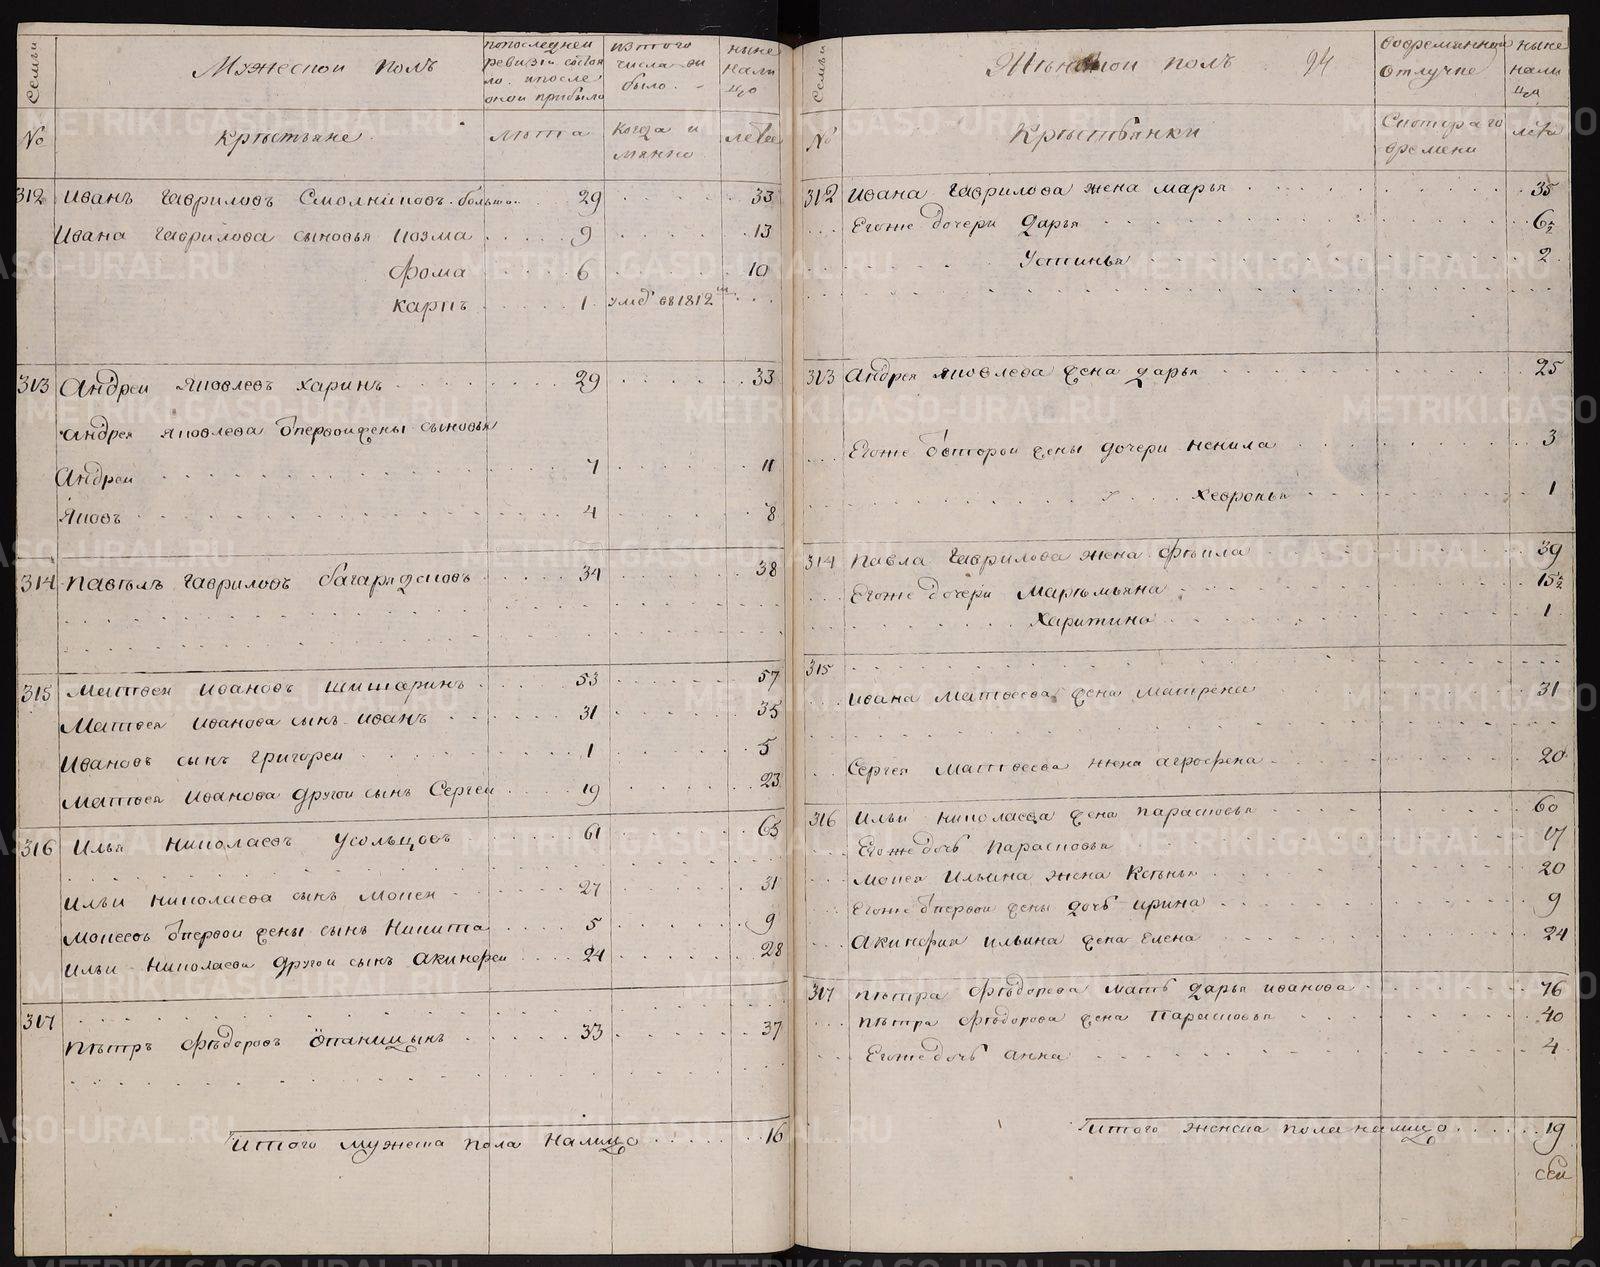 Семьи
Мужескои полъ
попоследней ревизiи состояло ипосле оной прибыло
изтого числа выбыло
ныне налицо
№
крѣстьяне
лѣта
когда и мянно
лета
312 Иванъ Гавриловъ Смолниковъ большо. 29 33
Ивана Гаврилова сыновья Козма 9 13
Фома 6 10
Карпъ 1 умѣ въ 1812м
313 Андреи Яковлевъ Харинъ 29 33
Андрея Яковлева впервои жены сыновья
Андреи 7 11
Яковъ 4 8
314 Павѣлъ Гавриловъ Багарядсковъ 34 38
315 Матвеи Ивановъ Шишаринъ 53 57
Матвея Иванова сынъ Иванъ 31 35
Ивановъ сынъ Григореи 1 5
Матвея Иванова другои сынъ Сергеи 19 23
316 Илья Николаевъ Усольцовъ 61 65
Ильи Николаева сынъ Мокеи 27 31
Мокеевъ впервои жены сынъ Никита 5 9
Ильи Николаева другои сынъ Акинфеи 24 28
317
Пѣтръ Фѣдоровъ Опаницынъ 33 37
Итого мужеска пола налицо 16
Семьи
Жѣнскои полъ 94
вовременнои отлучке
ныне налица
№
Крѣстьянки
Скотораго времени
лѣта
312 Ивана Гаврилова жена Марья 35
Егоже дочери Дарья 6½
Устинья 2
313 Андрея Яковлева жена Дарья 25
Егоже второи жены дочери Ненила 3
Хевронья 1
314 Павла Гаврилова жена Фѣкла 39
Егоже дочери Марѣмьяна 15½
Харитина 1
315
Ивана Матвеева жена Матрена 31
Сергея Матвеева жена Агрофена 20
316 Ильи Николаева жена Парасковья 60
Егоже дочь Парасковья 17
Мокея Ильина жена Ксенья 20
Егоже впервои жены дочь Ирина 9
Акинфия Ильина жена Елена 24
317 Пѣтра Фѣдорова мать Дарья Иванова 76
Пѣтра Фѣдорова жена Парасковья 40
Егоже дочь Анна 4
Итого женска пола налицо 19
METRIKI.GASO-URAL.RU